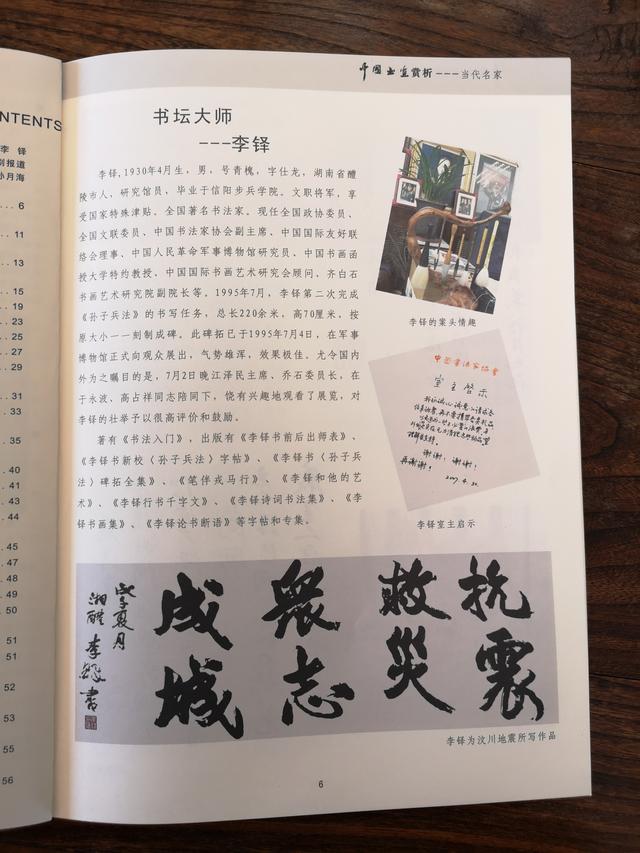 ENTENTS
李 铎
别报道
孙月海
6
11
13
15
19
23
25
27
29
33
35
40
41
43
44
45
47
48
49
50
51
51
52
53
55
56
中国书画赏析---当代名家
书坛大师
---李铎
李铎,1930年4月生，男，号青槐，字仕龙，湖南省醴
陵市人，研究馆员，毕业于信阳步兵学院。文职将军，享
受国家特殊津贴。全国著名书法家。现任全国政协委员、
全国文联委员、中国书法家协会副主席、中国国际友好联
络会理事、中国人民革命军事博物馆研究员、中国书画函
授大学特约教授、中国国际书画艺术研究会顾问、齐白石
书画艺术研究院副院长等。1995年7月，李铎第二次完成
《孙子兵法》的书写任务，总长220余米，高70厘米，按
原大小一一刻制成碑。此碑拓已于1995年7月4日，在军事
博物馆正式向观众展出，气势雄浑，效果极佳。尤令国内
外为之瞩目的是，7月2日晚江泽民主席、乔石委员长，在
于永波、高占祥同志陪同下，饶有兴趣地观看了展览，对
李铎的壮举予以很高评价和鼓励。
著有《书法入门》，出版有《李铎书前后出师表》、
《李铎书新校〈孙子兵法〉字帖》、《李铎书〈孙子兵
法〉碑拓全集》、《笔伴戎马行》、《李铎和他的艺
术》、《李铎行书千字文》、《李铎诗词书法集》、《李
铎书画集》、《李铎论书断语》等字帖和专集。
李铎的案头情趣
中国书法家协会
室主启示
谢谢，谢谢！
再谢谢！
2007.4.20.
李铎室主启示
抗震
救災
衆志
成城
戊子夏月
湘醴李鐸書
李铎为汶川地震所写作品
6